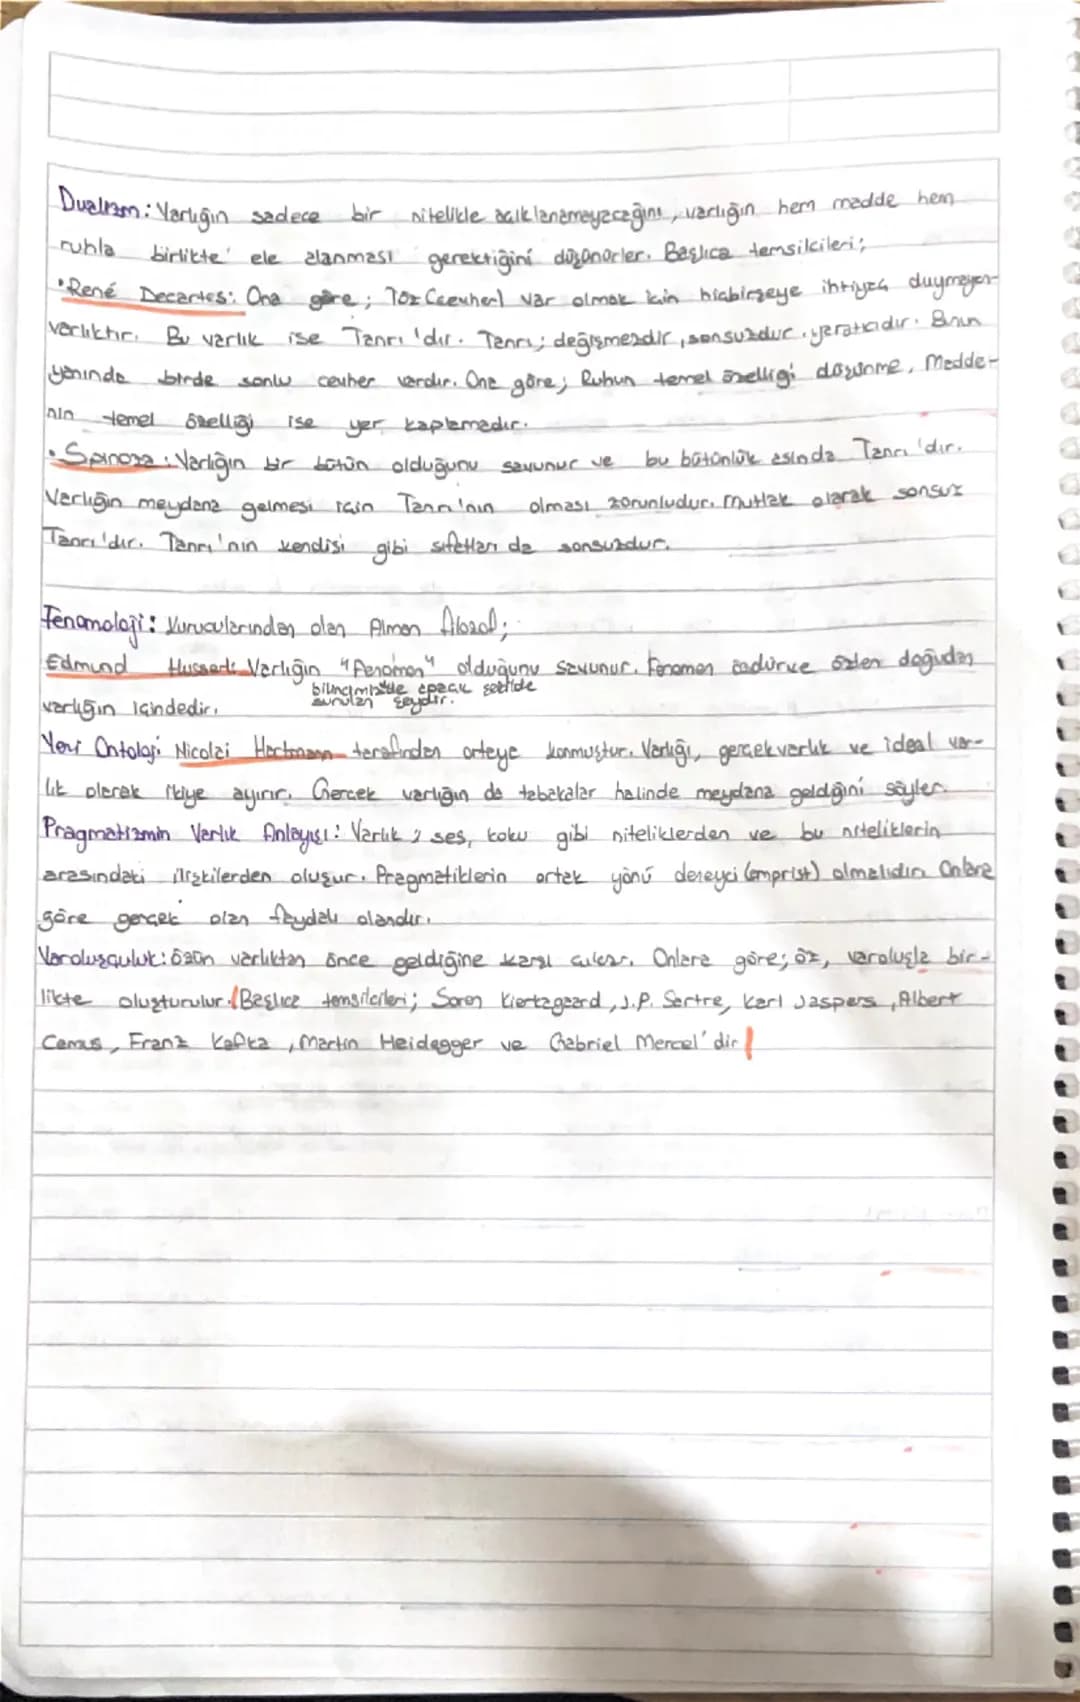 Dualizm: Varlığın sadece bir nitelikle açıklanamayacağını, varlığın hem madde hem
ruhla birlikte ele alanması gerektiğini düşünürler. Başlıca temsilcileri;
•René Decartes: Ona göre; Töz (cevher) var olmak için hiçbirşeye ihtiyaç duymayan
varlıktır. Bu varlık ise Tanrı'dır. Tanrı; değişmezdir, sonsuzdur, yaratıcıdır. Bunun
yanında birde sonlu cevher vardır. Ona göre; Ruhun temel özelliği düşünme, Madde-
nin temel özelliği ise yer kaplamadır.
•Spinoza: Varlığın bir bütün olduğunu savunur ve bu bütünlük asında Tanrı'dır.
Varlığın meydana gelmesi için Tanrı'nın olması zorunludur. Mutlak olarak sonsuz
Tanrı'dır. Tanrı'nın kendisi gibi sıfatları da sonsuzdur.
Fenomoloji: Kurucularından olan Alman filozof;
Edmund Husserl: Varlığın "Fenomen" olduğunu savunur. Fenomen özdür ve özler doğudan
bilincimizde apaçık şekilde
sunulan şeydir.
varlığın içindedir.
Yeni Ontoloji: Nicolai Hartmann tarafından orteye konmuştur. Varlığı, gerçek varlık ve ideal var-
lık olarak ikiye ayırır. Gerçek varlığın da tabakalar halinde meydana geldiğini söyler.
Pragmatizmin Varlık Anlayışı: Varlık; ses, koku gibi niteliklerden ve bu niteliklerin
arasındaki ilişkilerden oluşur. Pragmatiklerin ortak yönü deneyci (emprist) olmalıdır. Onlara
göre gerçek olan faydalı olandır.
Varoluşçuluk: Özün varlıktan önce geldiğine karşı çıkar. Onlara göre; öz, varoluşla bir-
likte oluşturulur. (Başlıca temsilcileri; Soren Kierkegaard, J.P. Sartre, Karl Jaspers, Albert
Camus, Franz Kafka, Martin Heidegger ve Gabriel Marcel'dir)